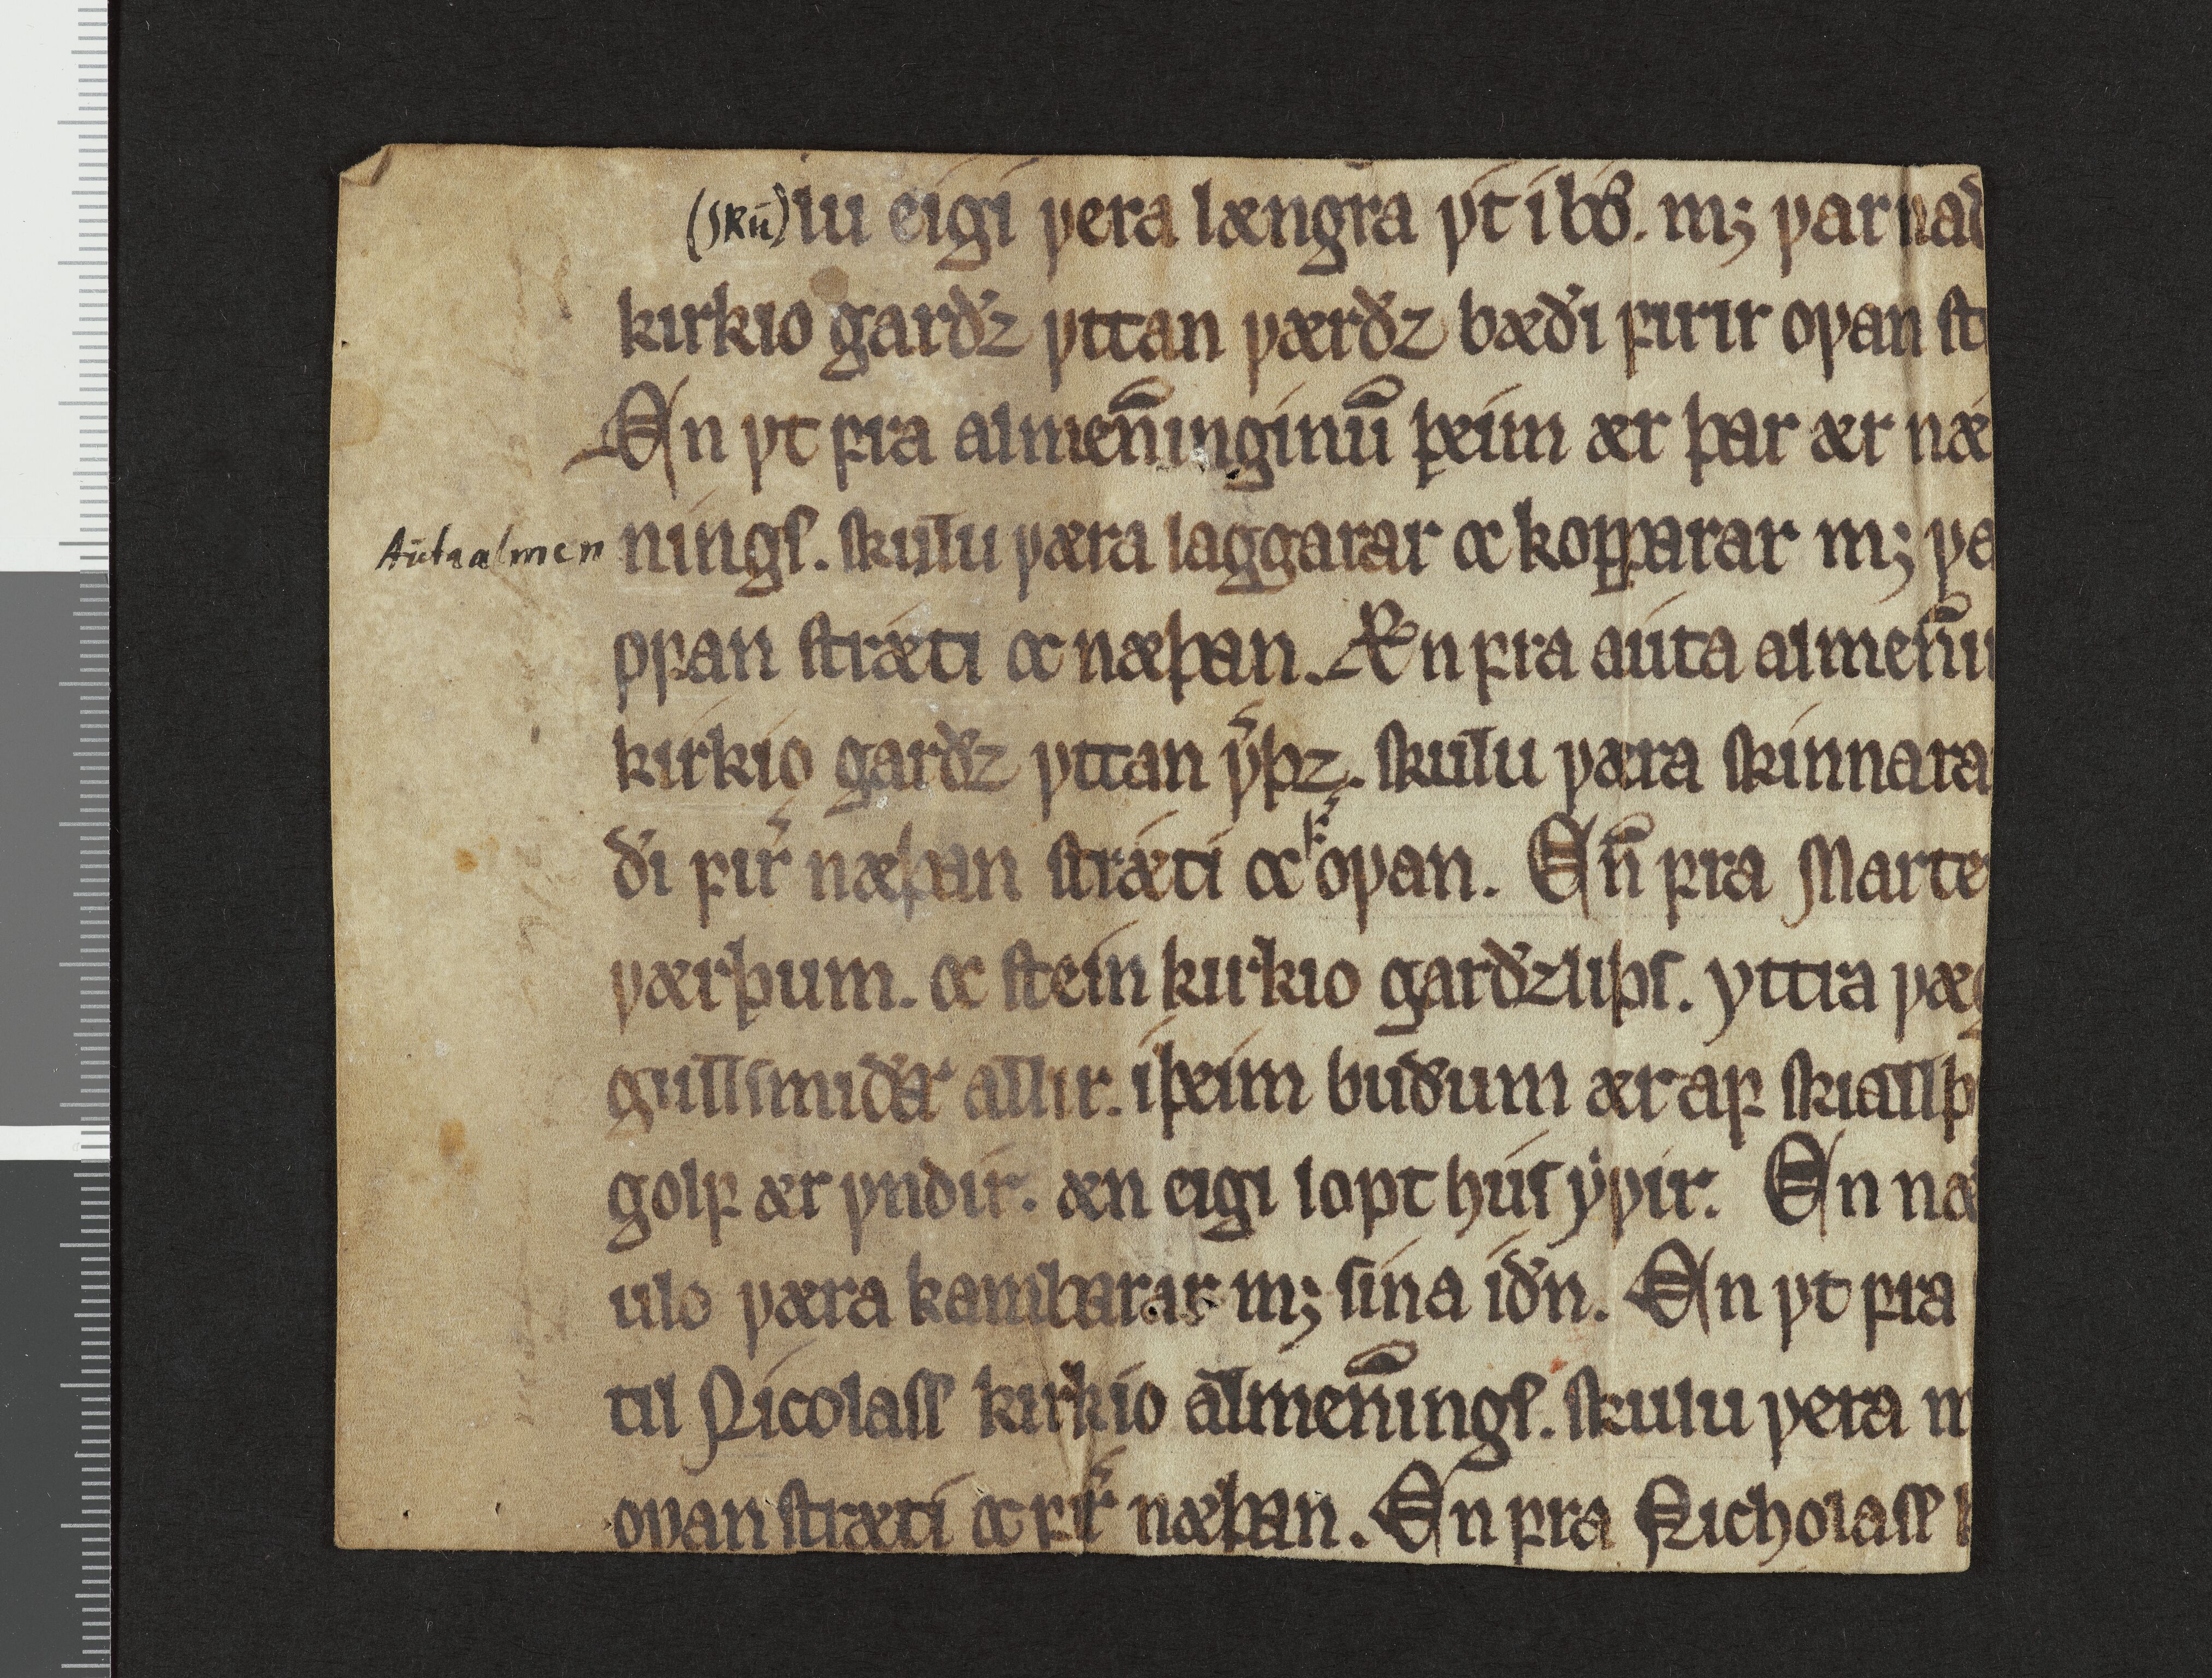 (sku)lu eigi vera længra vt i bö. m; varnad
kirkio gardz vttan værdz bædi firir ovan st
En vt fra almeñinginū þeim ær þar ær næ
Autaalmen nings. skulu væra laggarar ꝏ kopparar m; va
ofan stræti ꝏ næþan. Æn fra auta almen̄i
kirkio gardz vttan v̓þz. skulu væra skinnara
di fir̓ næþan stræti ꝏ f̓ ovan. En̄ fra Marte
værþum. ꝏ stein kirkio gardzliþs. yttra væg
gullsmidar allir. i þeim budum ær af skiallþ
golf ær vndir. æn eigi lopt hús ẏvir. En næ
ulo væra kambarar m; sina idn. En vt fra
til Nicolass kirkio almen̄ings. skulu vera m
ovan stræti ꝏ fir̓ næþan. En fra Nicholass k